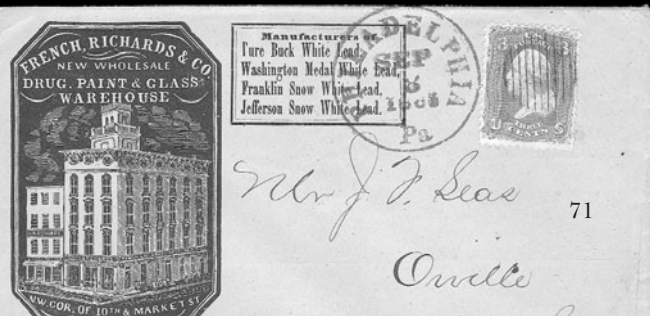 FRENCH, RICHARDS & CO
NEW WHOLESALE
DRUG, PAINT & GLASS
WAREHOUSE
N.W. COR. OF 10TH & MARKET ST
Manufacturers of
Pure Buck White Lead,
Washington Medal White Lead,
Franklin Snow White Lead,
Jefferson Snow White Lead.
PHILADELPHIA
SEP
Pa
3 U.S. 3
THREE
CENTS
Mr J. F. Seas
Orville
71